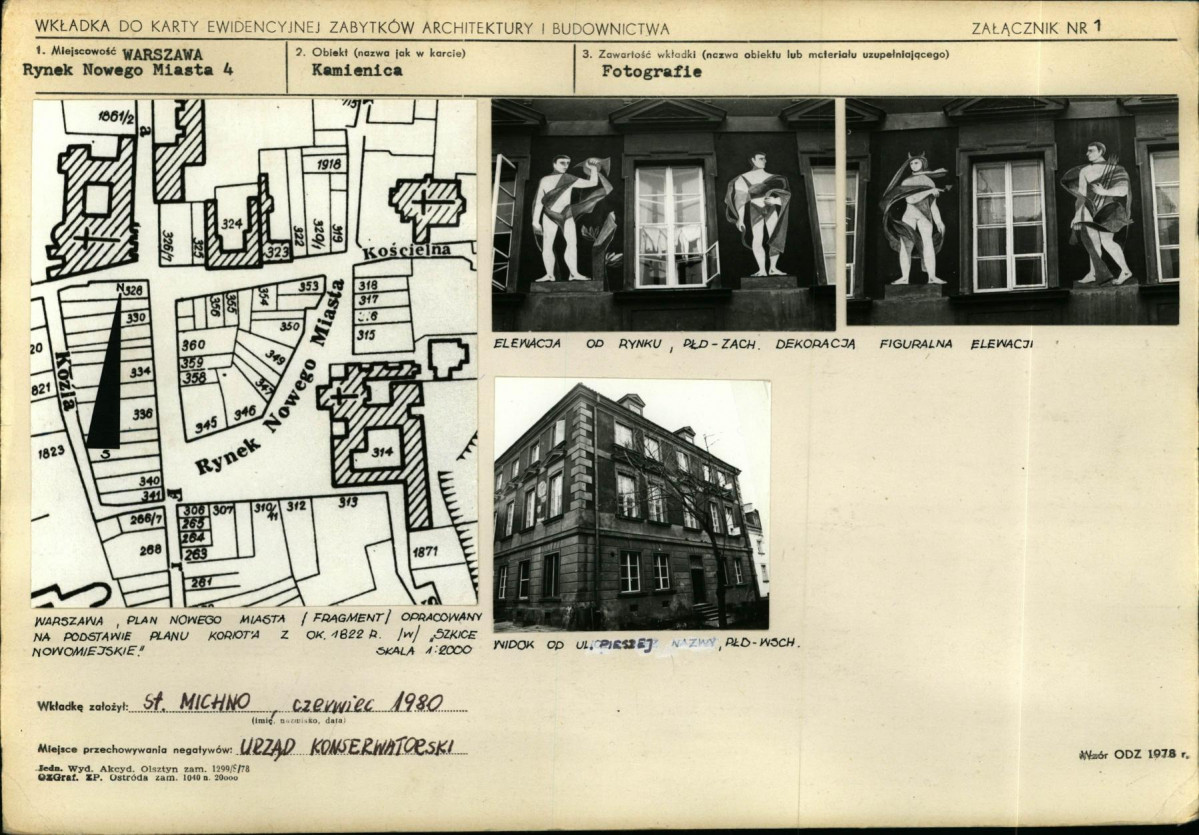 WKŁADKA DO KARTY EWIDENCYJNEJ ZABYTKÓW ARCHITEKTURY I BUDOWNICTWA
ZAŁĄCZNIK NR 1
1. Miejscowość WARSZAWA
Rynek Nowego Miasta 4
2. Obiekt (nazwa jak w karcie)
Kamienica
3. Zawartość wkładki (nazwa obiektu lub materiału uzupełniającego)
Fotografie
1881/2
a
1918
324
326/1
325
323
322
320/1
319
Kościelna
N 328
330
334
336
340
341
Kozia
20
821
1823
S
353
354
355
356
350
360
359
358
349
347
346
345
318
317
315
Rynek Nowego Miasta
314
313
312
310/11
307
306
265
264
263
261
266/7
268
1871
F
r
ELEWACJA OD RYNKU, PŁD-ZACH. DEKORACJA FIGURALNA ELEWACJI
WARSZAWA, PLAN NOWEGO MIASTA /FRAGMENT/ OPRACOWANY
NA PODSTAWIE PLANU KORIOT'A Z OK. 1822 R. /W/ „SZKICE
NOWOMIEJSKIE." SKALA 1:2000
WIDOK OD UL. PIESZEJ NAZWY, PŁD-WSCH.
Wkładkę założył: St. MICHNO, czerwiec 1980
(imię, nazwisko, data)
Miejsce przechowywania negatywów: URZĄD KONSERWATORSKI
Jedn. Wyd. Akcyd. Olsztyn zam. 1299/S/78
OZGraf. ZP. Ostróda zam. 1040 n. 20000
Wzór ODZ 1978 r.